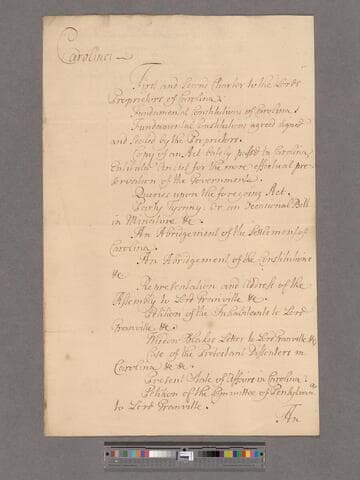 Carolina
First and Second Charter to the Lords
Proprietors of Carolina
Fundamental Constitutions of Carolina
Fundamental Constitutions agreed signed
and Sealed by the Proprietors.
Copy of an Act lately past in Carolina
Entituled An Act for the more effectual pre-
servation of the Governmt
Queries upon the foregoing Act.
Party Tyranny. Or an Occasional Bill
in Miniature &c
An Abridgement of the Settlement of
Carolina
An Abridgement of the Constitutions
&c
Representation and Address of the
Assembly to Lord Granville &c.
Petition of the Inhabitants to Lord
Granville &c.
Widow Blakes Letter to Lord Granville &c
Case of the Protestant Dissenters in
Carolina &c &c
Present State of Affairs in Carolina
Petition of the Committee of Pensylvania
to Lord Granville.
An